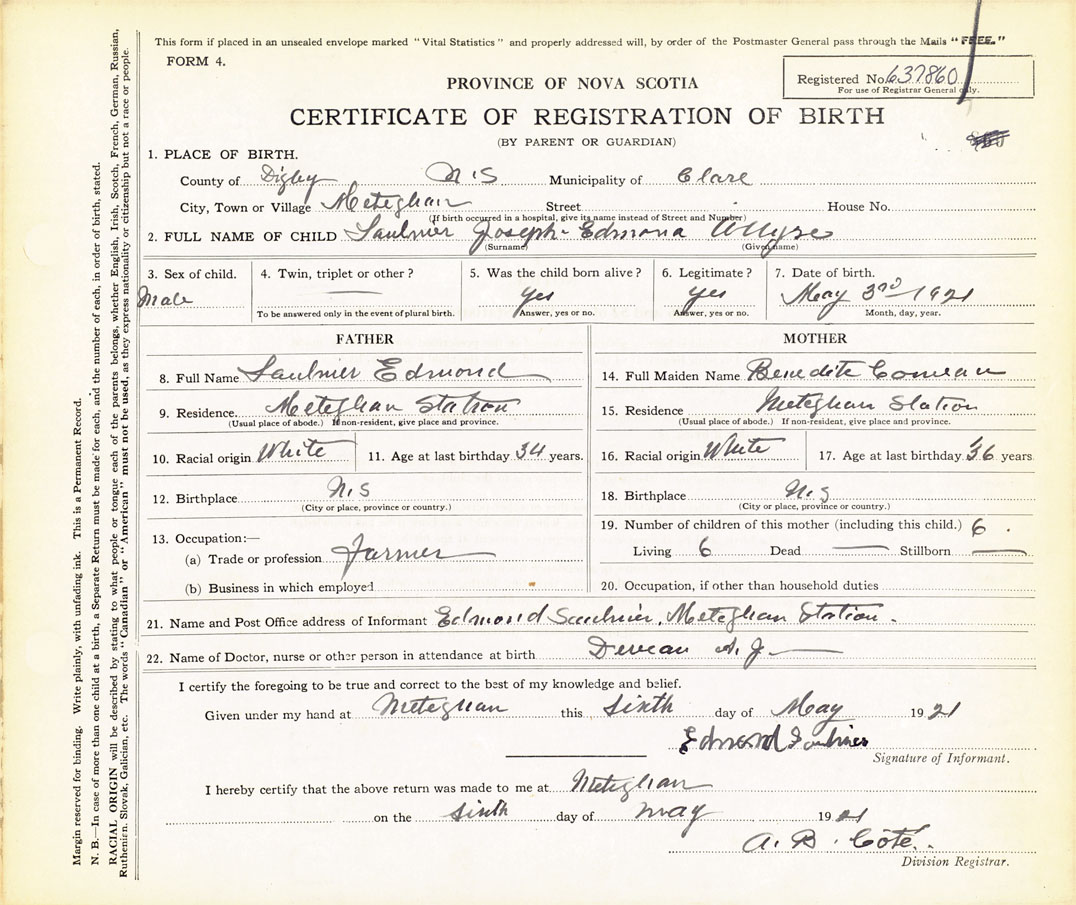 This form if placed in an unsealed envelope marked "Vital Statistics" and properly addressed will, by order of the Postmaster General pass through the Mails "FREE."
FORM 4.
Registered No. 637860
For use of Registrar General only.
PROVINCE OF NOVA SCOTIA
CERTIFICATE OF REGISTRATION OF BIRTH
(BY PARENT OR GUARDIAN)
1. PLACE OF BIRTH.
County of Digby N.S Municipality of Clare
City, Town or Village Meteghan Street House No.
(If birth occurred in a hospital, give its name instead of Street and Number)
2. FULL NAME OF CHILD Saulnier Joseph-Edmond
(Surname) (Given name)
3. Sex of child. 4. Twin, triplet or other? 5. Was the child born alive? 6. Legitimate? 7. Date of birth.
Male yes yes May 3rd 1921
To be answered only in the event of plural birth. Answer, yes or no. Answer, yes or no. Month, day, year.
FATHER
8. Full Name Saulnier Edmond
9. Residence. Meteghan Station
(Usual place of abode.) If non-resident, give place and province.
10. Racial origin White 11. Age at last birthday 34 years.
12. Birthplace N.S
(City or place, province or country.)
13. Occupation:—
(a) Trade or profession Farmer
(b) Business in which employed
MOTHER
14. Full Maiden Name Benedite Comeau
15. Residence Meteghan Station
(Usual place of abode.) If non-resident, give place and province.
16. Racial origin White 17. Age at last birthday 36 years
18. Birthplace N.S
(City or place, province or country.)
19. Number of children of this mother (including this child.) 6.
Living 6 Dead — Stillborn —
20. Occupation, if other than household duties
21. Name and Post Office address of Informant Edmond Saulnier, Meteghan Station.
22. Name of Doctor, nurse or other person in attendance at birth Deveau A. J.
I certify the foregoing to be true and correct to the best of my knowledge and belief.
Given under my hand at Meteghan this sixth day of May 1921
Edmond Saulnier
Signature of Informant.
I hereby certify that the above return was made to me at Meteghan
on the sixth day of May 1921
A. B. Côté.
Division Registrar.
Margin reserved for binding. Write plainly, with unfading ink. This is a Permanent Record.
N. B.—In case of more than one child at a birth, a Separate Return must be made for each, and the number of each, in order of birth, stated.
RACIAL ORIGIN will be described by stating to what people or tongue each of the parents belongs, whether English, Irish, Scotch, French, German, Russian,
Ruthenian, Slovak, Galician, etc. The words "Canadian" or "American" must not be used, as they express nationality or citizenship but not a race or people.